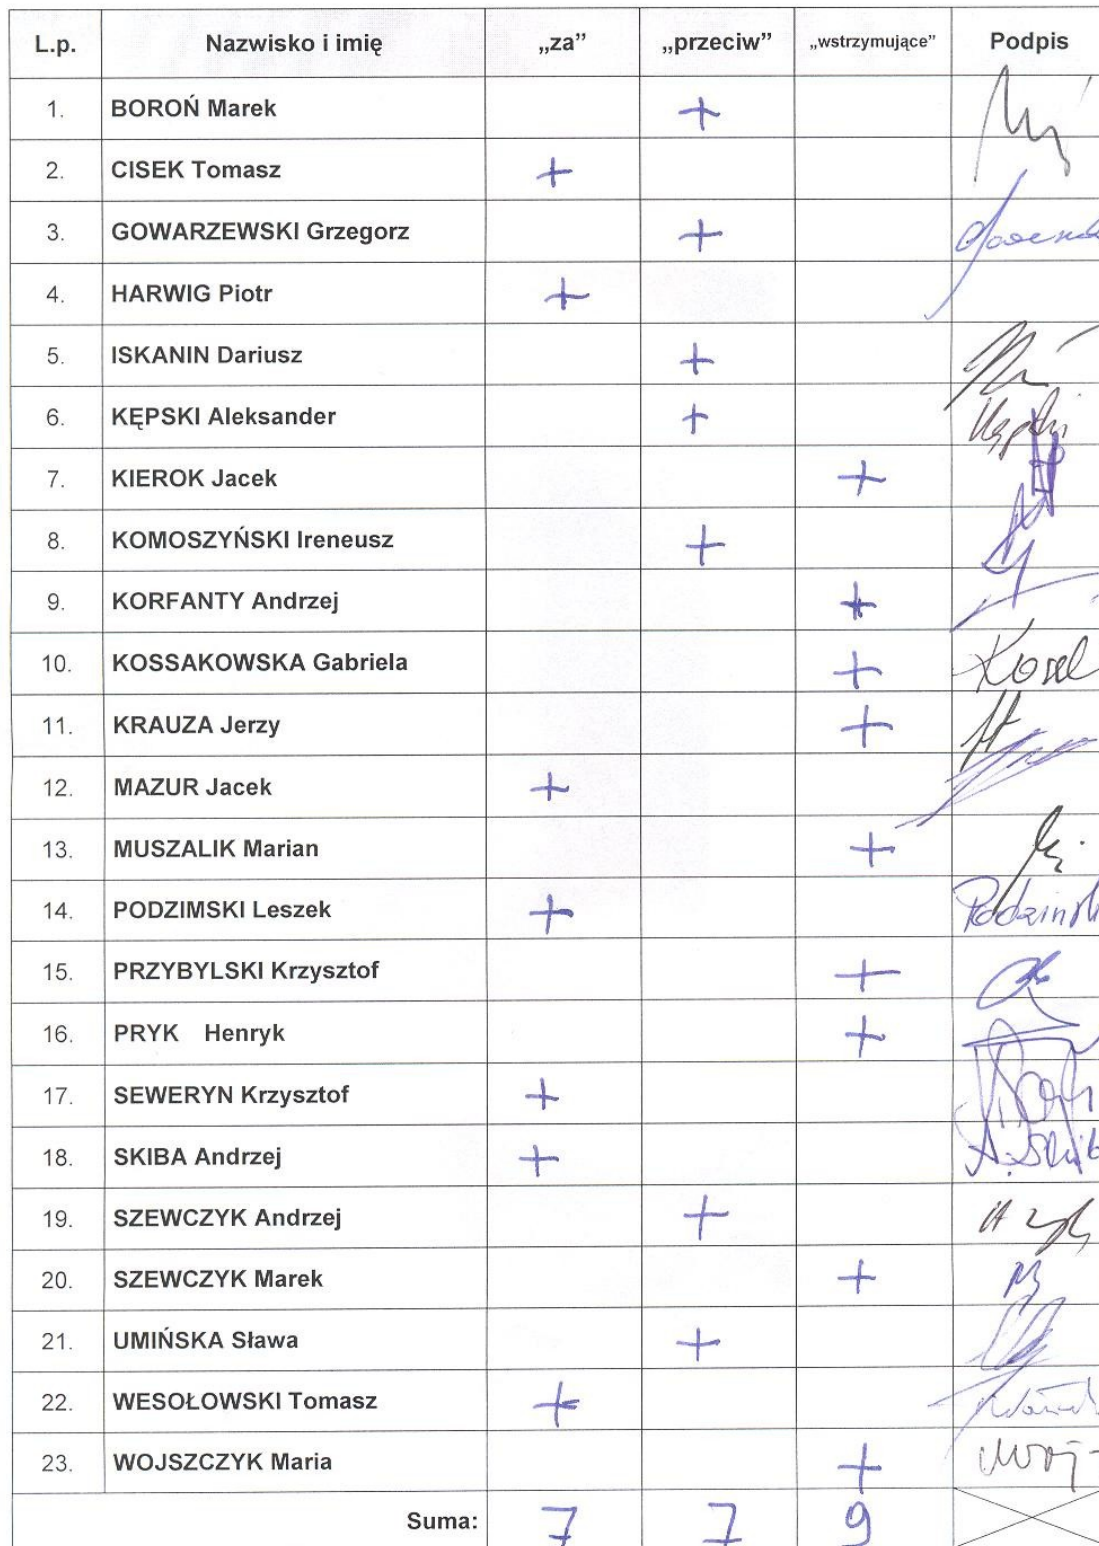 L.p. Nazwisko i imię „za” „przeciw” „wstrzymujące” Podpis
1. BOROŃ Marek +
2. CISEK Tomasz +
3. GOWARZEWSKI Grzegorz +
4. HARWIG Piotr +
5. ISKANIN Dariusz +
6. KĘPSKI Aleksander +
7. KIEROK Jacek +
8. KOMOSZYŃSKI Ireneusz +
9. KORFANTY Andrzej +
10. KOSSAKOWSKA Gabriela +
11. KRAUZA Jerzy +
12. MAZUR Jacek +
13. MUSZALIK Marian +
14. PODZIMSKI Leszek +
15. PRZYBYLSKI Krzysztof +
16. PRYK Henryk +
17. SEWERYN Krzysztof +
18. SKIBA Andrzej +
19. SZEWCZYK Andrzej +
20. SZEWCZYK Marek +
21. UMIŃSKA Sława +
22. WESOŁOWSKI Tomasz +
23. WOJSZCZYK Maria +
Suma: 7 7 9